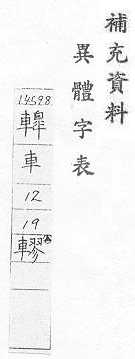 補充資料
異體字表
14598
車
12
19
轇